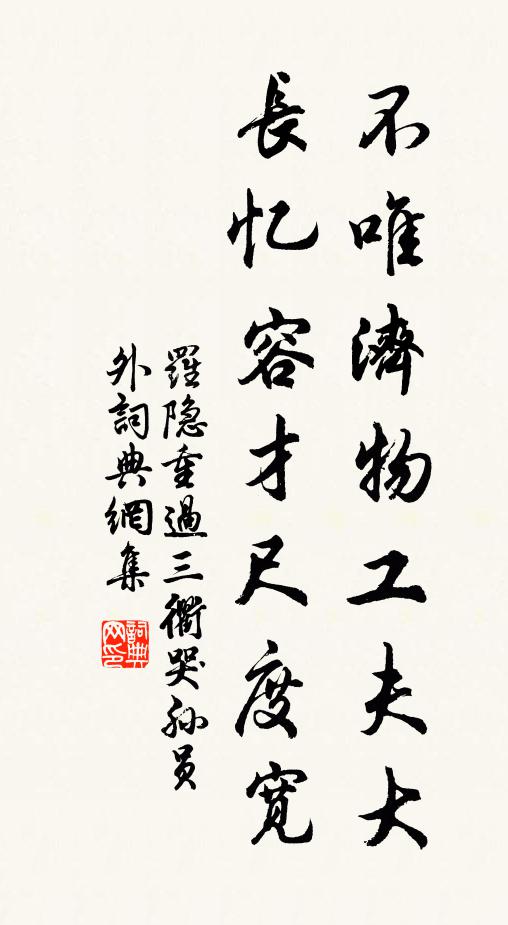 不唯濟物工夫大
長忆容才尺度寬
羅隐重過三衢哭孙员
外詞典網集
詞典网印